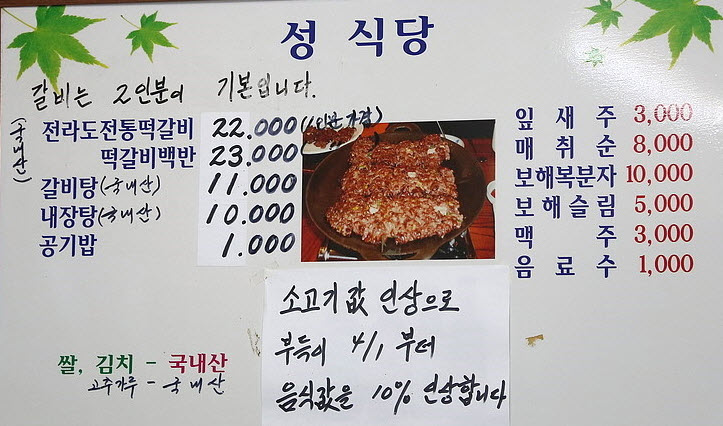 성 식당
갈비는 2인분이 기본입니다.
(국내산)
전라도전통떡갈비 22.000 (1인분 가격)
떡갈비백반 23.000
갈비탕(국내산) 11.000
내장탕(국내산) 10.000
공기밥 1.000
잎새주 3,000
매취순 8,000
보해복분자 10,000
보해슬림 5,000
맥주 3,000
음료수 1,000
소고기값 인상으로
부득이 4/1 부터
음식값을 10% 인상합니다
쌀, 김치 - 국내산
고추가루 - 국내산